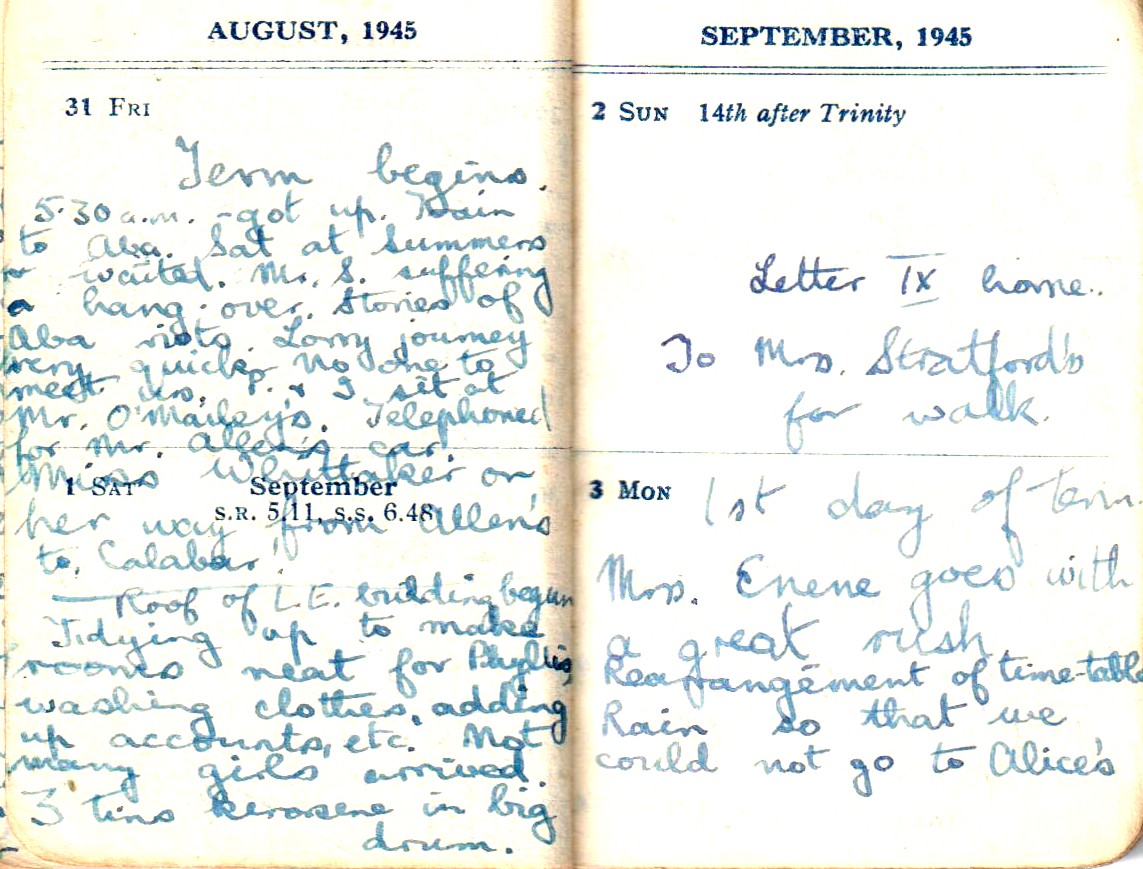 AUGUST, 1945
31 FRI
Term begins.
5.30 a.m. - got up. Train
to Aba. Sat at Summers
& waited. Mr. S. suffering
a hang-over. Stories of
Aba riots. Lorry journey
very quick. No one to
meet us. P. & I. sit at
Mr. O'Mailey's. Telephoned
for Mr. Allen's car.
Miss Whittaker on
1 SAT September
S.R. 5.11, S.S. 6.48
her way from Allen's
to Calabar.
Roof of L.E. building begun
Tidying up to make
rooms neat for Phyllis,
washing clothes, adding
up accounts, etc. Not
many girls arrived.
3 tins kerosene in big
drum.
SEPTEMBER, 1945
2 SUN 14th after Trinity
Letter IX home.
To Mrs. Stratford's
for walk.
3 MON 1st day of term
Mrs. Enene goes with
a great rush.
Rearrangement of time-table
Rain so that we
could not go to Alice's